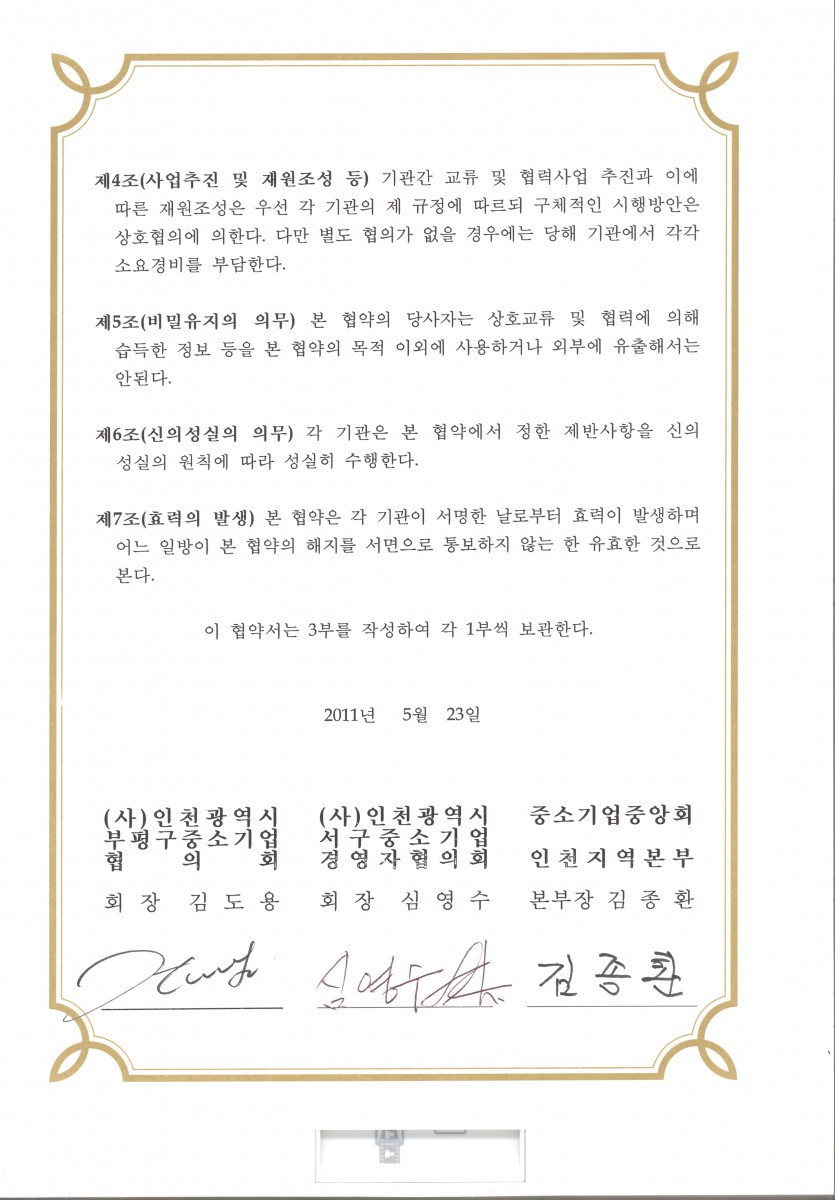 제4조(사업추진 및 재원조성 등) 기관간 교류 및 협력사업 추진과 이에
따른 재원조성은 우선 각 기관의 제 규정에 따르되 구체적인 시행방안은
상호협의에 의한다. 다만 별도 협의가 없을 경우에는 당해 기관에서 각각
소요경비를 부담한다.
제5조(비밀유지의 의무) 본 협약의 당사자는 상호교류 및 협력에 의해
습득한 정보 등을 본 협약의 목적 이외에 사용하거나 외부에 유출해서는
안된다.
제6조(신의성실의 의무) 각 기관은 본 협약에서 정한 제반사항을 신의
성실의 원칙에 따라 성실히 수행한다.
제7조(효력의 발생) 본 협약은 각 기관이 서명한 날로부터 효력이 발생하며
어느 일방이 본 협약의 해지를 서면으로 통보하지 않는 한 유효한 것으로
본다.
이 협약서는 3부를 작성하여 각 1부씩 보관한다.
2011년 5월 23일
(사)인천광역시
부평구중소기업
협 의 회
회 장 김 도 용
(사)인천광역시
서구중소기업
경영자협의회
회 장 심 영 수
심영수
중소기업중앙회
인천지역본부
본부장 김 종 환
김종환